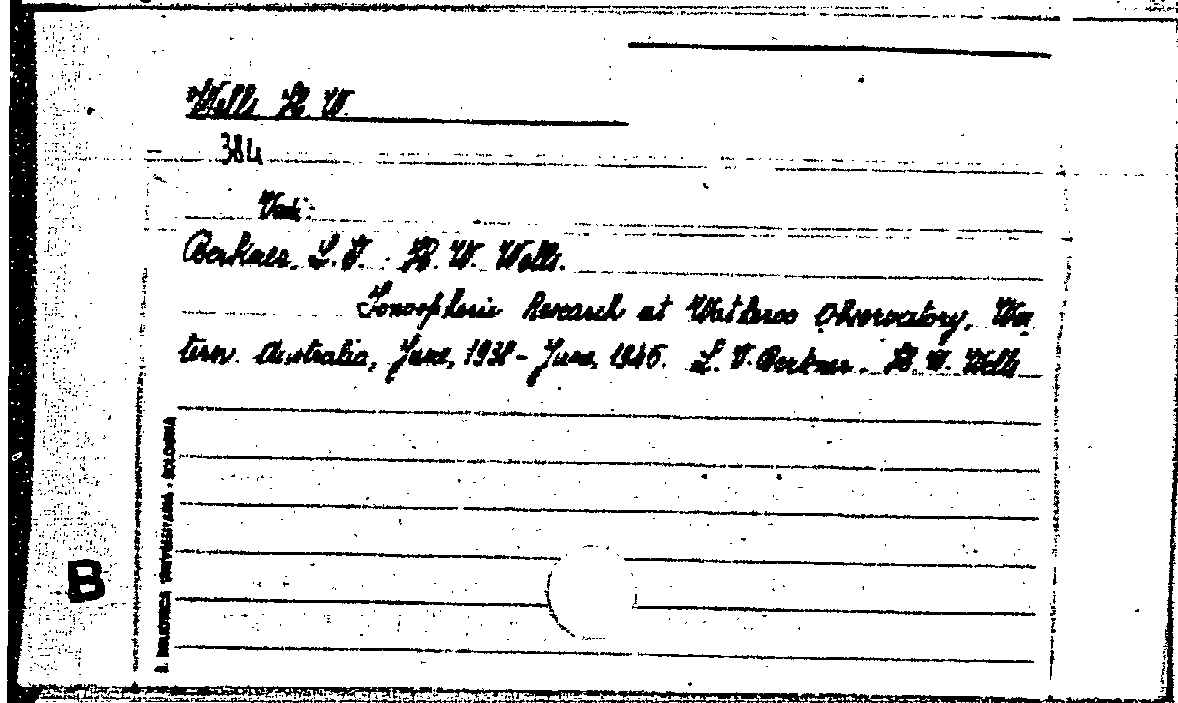 Wells H. W.
384
Vedi:
Berkner, L. V. - H. W. Wells.
Ionospheric Research at Watheroo Observatory, Wes
tern Australia, June, 1938 - June, 1946. L. V. Berkner - H. W. Wells
R. BIBLIOTECA UNIVERSITARIA - BOLOGNA
B